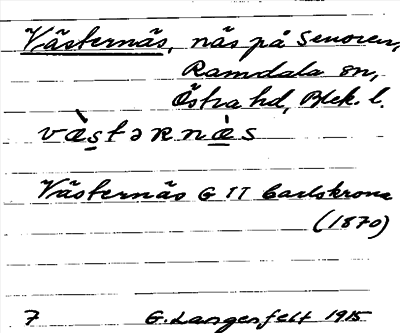 Västernäs, näs på Senoren,
Ramdala sn,
Östra hd, Blek. l.
væ̀stərnæ̀s
Västernäs G II Carlskrona
(1870)
7 G. Langenfelt 1915